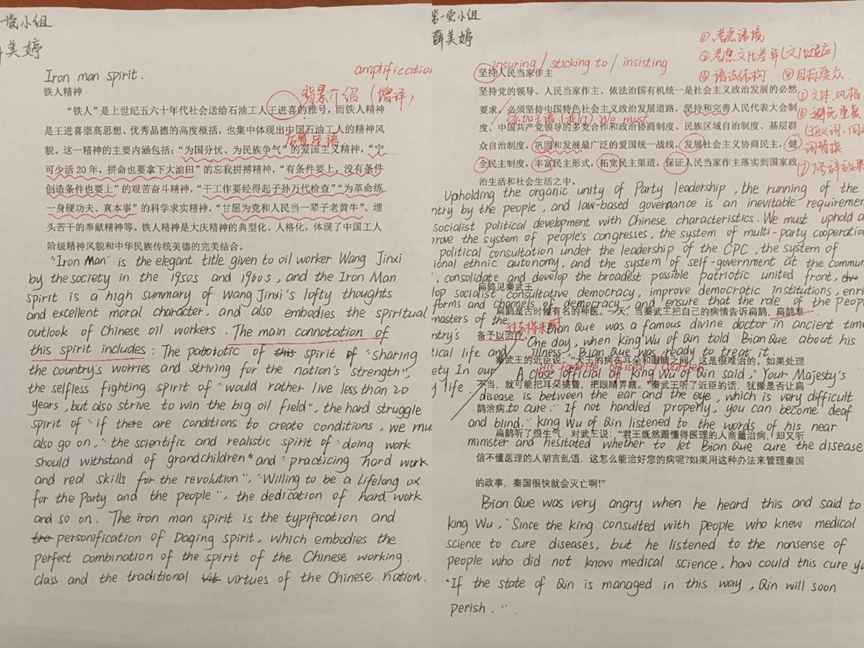 一党小组
美婷
Iron man spirit.
amplification
铁人精神
背景介绍（增译）
“铁人”是上世纪五六十年代社会送给石油工人王进喜的雅号，而铁人精神
是王进喜崇高思想、优秀品德的高度概括，也集中体现出中国石油工人的精神风
貌，这一精神的主要内涵包括：“为国分忧、为民族争气”的爱国主义精神，“宁
可少活20年，拼命也要拿下大油田”的忘我拼搏精神，“有条件要上，没有条件
创造条件也要上”的艰苦奋斗精神，“干工作要经得起子孙万代检查”“为革命练
一身硬功夫、真本事”的科学求实精神，“甘愿为党和人民当一辈子老黄牛”、埋
头苦干的奉献精神等。铁人精神是大庆精神的典型化、人格化，体现了中国工人
阶级精神风貌和中华民族传统美德的完美结合。
"Iron Man" is the elegant title given to oil worker Wang Jinxi
by the society in the 1950s and 1960s, and the Iron Man
spirit is a high summary of Wang Jinxi's lofty thoughts
and excellent moral character, and also embodies the spiritual
outlook of Chinese oil workers. The main connotation of
this spirit includes: The patriotic of this spirit of "sharing
the country's worries and striving for the nation's strength",
the selfless fighting spirit of "would rather live less than 20
years, but also strive to win the big oil field", the hard struggle
spirit of "if there are conditions to create conditions, we mu
also go on," the scientific and realistic spirit of "doing work
should withstand of grandchildren" and "practicing hard work
and real skills for the revolution", "Willing to be a lifelong ox
for the Party and the people", the dedication of hard work
and so on. The iron man spirit is the typification and
personification of Daqing spirit, which embodies the
perfect combination of the spirit of the Chinese working
class and the traditional virtues of the Chinese nation.
第一党小组
薛美婷
insuring / sticking to / insisting
①考虑语境
②考虑文化差异(文化适应)
③语法结构 ④目标受众
坚持人民当家作主
坚持党的领导、人民当家作主、依法治国有机统一是社会主义政治发展的必然
要求，必须坚持中国特色社会主义政治发展道路，坚持和完善人民代表大会制
We must
度、中国共产党领导的多党合作和政治协商制度、民族区域自治制度、基层群
众自治制度，巩固和发展最广泛的爱国统一战线，发展社会主义协商民主，健
全民主制度，丰富民主形式，拓宽民主渠道，保证人民当家作主落实到国家政
治生活和社会生活之中。
⑤文体、风格
⑥避免重复
Upholding the organic unity of Party leadership, the running of the
ntry by the people, and law-based governance is an inevitable requiremen
socialist political development with Chinese characteristics. We must uphold a
rove the system of people's congresses, the system of multi-party cooperation
political consultation under the leadership of the CPC, the system of
ional ethnic autonomy, and the system of self-government at the commun
, consolidate and develop the broadest possible patriotic united front,
lop socialist consultative democracy, improve democratic Institutions, enri
forms and channels of democracy, and ensure that the role of the People
masters of the
ntry's
tical life and
ety In our
g life.
扁鹊见秦武王
扁鹊是古时候有名的神医。一天，当秦武王把自己的病情告诉扁鹊，扁鹊准
备予以治疗。
Bian Que was a famous divine doctor in ancient time
One day, when king Wu of Qin told Bian Que about his
illness, Bian Que was ready to treat it.
秦武王的近臣说：“大王的病在耳朵和眼睛之间，这是很难治的。如果处理
his favorite official courtier
A close official of King Wu of Qin said, "Your Majesty's
不当，就可能把耳朵搞聋，把眼睛弄瞎。”秦武王听了近臣的话，犹豫是否让扁
disease is between the ear and the eye, which is very difficult
鹊治病
to cure. If not handled properly, you can become deaf
and blind." King Wu of Qin listened to the words of his near
扁鹊听了很生气，对武王说：“君王既然跟懂得医理的人商量治病，却又听
minister and hesitated whether to let Bian Que cure the disease
信不懂医理的人胡言乱语，这怎么能治好您的病呢？如果用这种办法来管理秦国
的政事，秦国很快就会灭亡啊！”
Bian Que was very angry when he heard this and said to
king Wu, "Since the king consulted with people who knew medical
science to cure diseases, but he listened to the nonsense of
people who did not know medical science, how could this cure yo
"If the state of Qin is managed in this way, Qin will soon
perish."